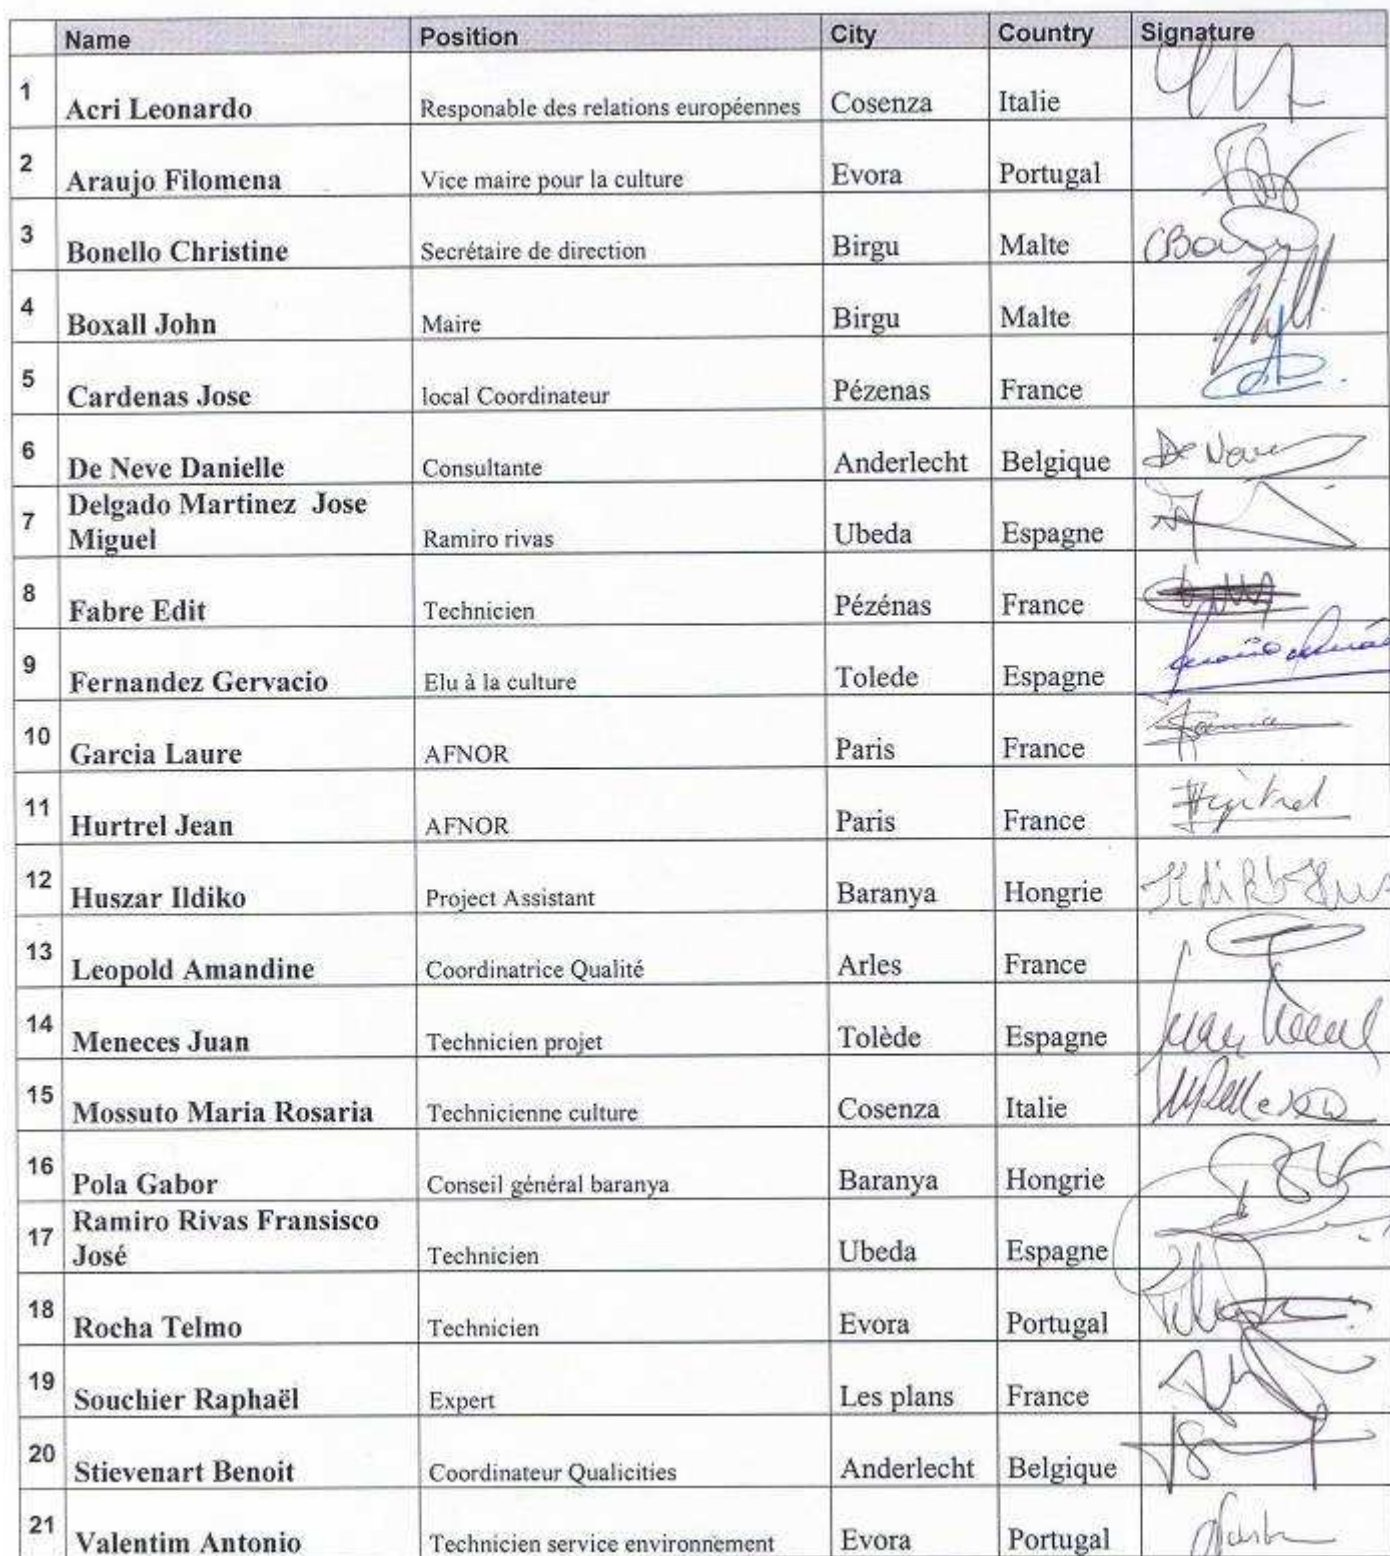 Name Position City Country Signature
1 Acri Leonardo Responable des relations européennes Cosenza Italie
2 Araujo Filomena Vice maire pour la culture Evora Portugal
3 Bonello Christine Secrétaire de direction Birgu Malte
4 Boxall John Maire Birgu Malte
5 Cardenas Jose local Coordinateur Pézenas France
6 De Neve Danielle Consultante Anderlecht Belgique
7 Delgado Martinez Jose
Miguel Ramiro rivas Ubeda Espagne
8 Fabre Edit Technicien Pézénas France
9 Fernandez Gervacio Elu à la culture Tolede Espagne
10 Garcia Laure AFNOR Paris France
11 Hurtrel Jean AFNOR Paris France Hurtrel
12 Huszar Ildiko Project Assistant Baranya Hongrie
13 Leopold Amandine Coordinatrice Qualité Arles France
14 Meneces Juan Technicien projet Tolède Espagne
15 Mossuto Maria Rosaria Technicienne culture Cosenza Italie
16 Pola Gabor Conseil général baranya Baranya Hongrie
17 Ramiro Rivas Fransisco
José Technicien Ubeda Espagne
18 Rocha Telmo Technicien Evora Portugal
19 Souchier Raphaël Expert Les plans France
20 Stievenart Benoit Coordinateur Qualicities Anderlecht Belgique
21 Valentim Antonio Technicien service environnement Evora Portugal